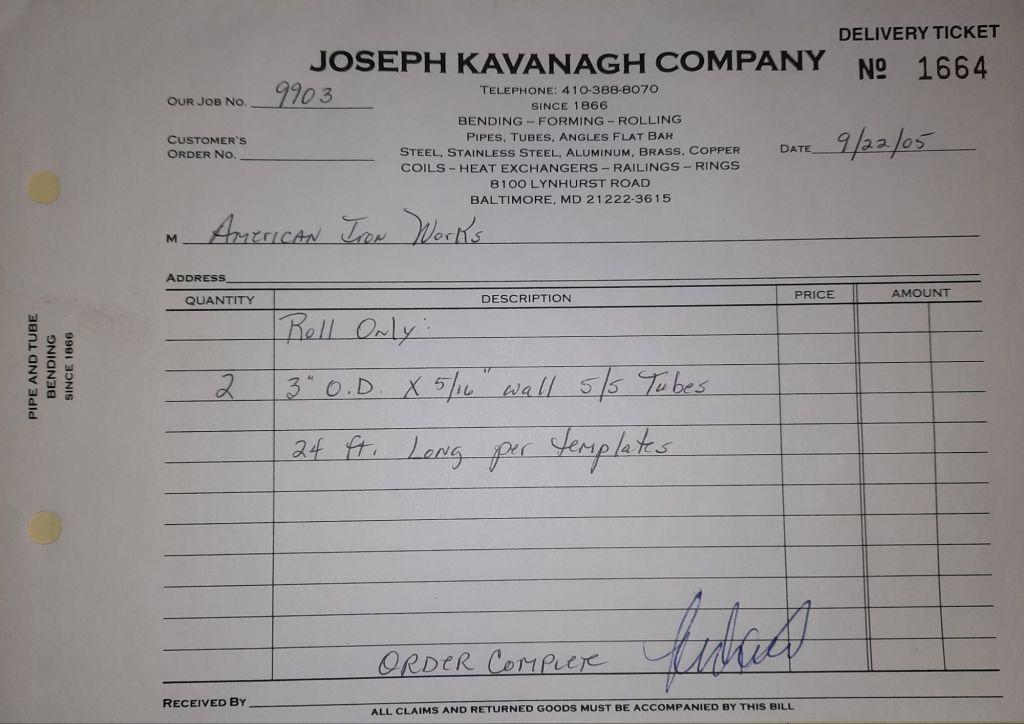 DELIVERY TICKET
JOSEPH KAVANAGH COMPANY
Nº 1664
OUR JOB NO. 9903
TELEPHONE: 410-388-8070
SINCE 1866
BENDING – FORMING – ROLLING
CUSTOMER'S
ORDER NO.
PIPES, TUBES, ANGLES FLAT BAR
STEEL, STAINLESS STEEL, ALUMINUM, BRASS, COPPER
DATE 9/22/05
COILS – HEAT EXCHANGERS – RAILINGS – RINGS
8100 LYNHURST ROAD
BALTIMORE, MD 21222-3615
M American Iron Works
ADDRESS
QUANTITY DESCRIPTION PRICE AMOUNT
Roll Only:
2 3" O.D. X 5/16" wall S/S Tubes
24 ft. Long per templates
ORDER COMPLETE
RECEIVED BY
ALL CLAIMS AND RETURNED GOODS MUST BE ACCOMPANIED BY THIS BILL
PIPE AND TUBE
BENDING
SINCE 1866